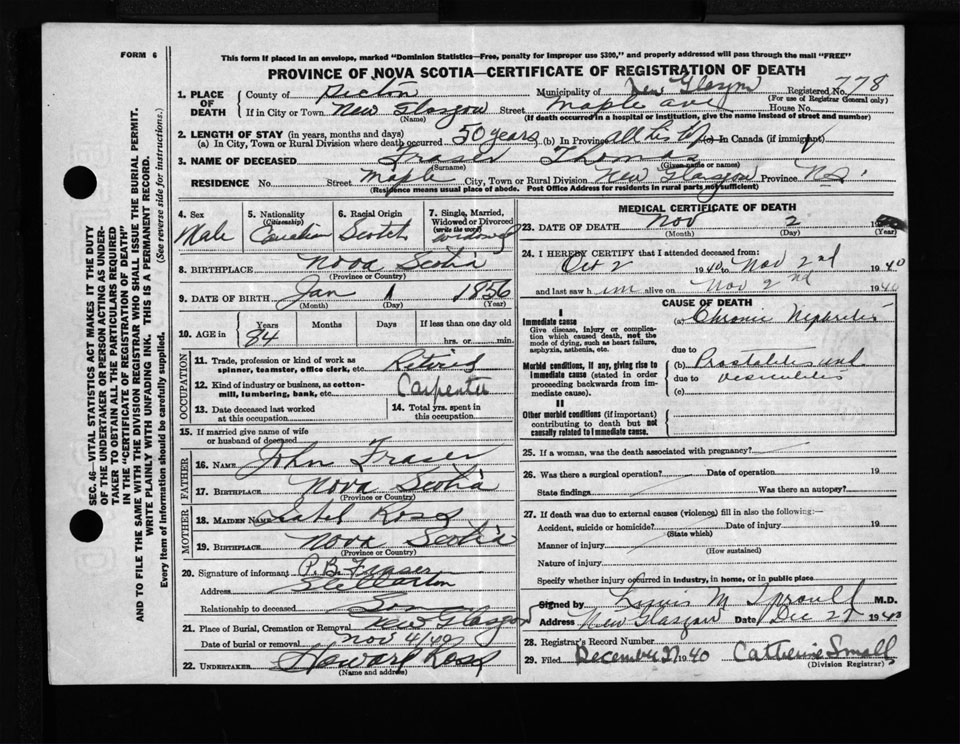 FORM 6
This form if placed in an envelope, marked "Dominion Statistics—Free, penalty for improper use $300," and properly addressed will pass through the mail "FREE"
PROVINCE OF NOVA SCOTIA—CERTIFICATE OF REGISTRATION OF DEATH
1. PLACE OF DEATH
County of Pictou Municipality of New Glasgow Registered No. 778
(For use of Registrar General only)
If in City or Town New Glasgow Street Maple Ave House No.
(Name) (If death occurred in a hospital or institution, give the name instead of street and number)
2. LENGTH OF STAY (in years, months and days)
(a) In City, Town or Rural Division where death occurred 50 years (b) In Province all his life (c) In Canada (if immigrant)
3. NAME OF DECEASED Fraser Thomas
(Surname) (Given name or names)
RESIDENCE No. Street Maple City, Town or Rural Division New Glasgow Province N.S.
(Residence means usual place of abode. Post Office Address for residents in rural parts not sufficient)
4. Sex Male
5. Nationality (Citizenship) Canadian
6. Racial Origin Scotch
7. Single, Married, Widowed or Divorced (write the word) widowed
8. BIRTHPLACE Nova Scotia
(Province or Country)
9. DATE OF BIRTH Jan 1 1856
(Month) (Day) (Year)
10. AGE in Years Months Days If less than one day old
84 hrs. or min.
OCCUPATION
11. Trade, profession or kind of work as spinner, teamster, office clerk, etc. Retired
12. Kind of industry or business, as cotton-mill, lumbering, bank, etc. Carpenter
13. Date deceased last worked at this occupation
14. Total yrs. spent in this occupation
15. If married give name of wife or husband of deceased
FATHER
16. NAME John Fraser
17. BIRTHPLACE Nova Scotia
(Province or Country)
MOTHER
18. MAIDEN NAME Isabel Ross
19. BIRTHPLACE Nova Scotia
(Province or Country)
20. Signature of informant P. B. Fraser
Address Stellarton
Relationship to deceased Son
21. Place of Burial, Cremation or Removal New Glasgow
Date of burial or removal Nov 4/40
22. UNDERTAKER Howard Ross
(Name and address)
MEDICAL CERTIFICATE OF DEATH
23. DATE OF DEATH Nov 2 19
(Month) (Day) (Year)
24. I HEREBY CERTIFY that I attended deceased from:
Oct 2 1940 to Nov 2nd 1940
and last saw him alive on Nov 2nd 1940
CAUSE OF DEATH
I
Immediate cause (a) Chronic Nephritis
Give disease, injury or complication which caused death, not the mode of dying, such as heart failure, asphyxia, asthenia, etc.
due to
Morbid conditions, if any, giving rise to immediate cause (stated in order proceeding backwards from immediate cause). (b) Prostatitis and
due to vesiculitis
(c)
II
Other morbid conditions (if important) contributing to death but not causally related to immediate cause.
25. If a woman, was the death associated with pregnancy?
26. Was there a surgical operation? Date of operation 19
State findings Was there an autopsy?
27. If death was due to external causes (violence) fill in also the following:—
Accident, suicide or homicide? Date of injury 19
(State which)
Manner of injury
(How sustained)
Nature of injury
Specify whether injury occurred in industry, in home, or in public place
Signed by M Sproull M.D.
Address New Glasgow Date Dec 27 1940
28. Registrar's Record Number
29. Filed December 27 1940 Catherine Small
(Division Registrar)
SEC. 46—VITAL STATISTICS ACT MAKES IT THE DUTY
OF THE UNDERTAKER OR PERSON ACTING AS UNDER-
TAKER TO OBTAIN ALL THE PARTICULARS REQUIRED
IN THE "CERTIFICATE OF REGISTRATION OF DEATH"
AND TO FILE THE SAME WITH THE DIVISION REGISTRAR WHO SHALL ISSUE THE BURIAL PERMIT.
WRITE PLAINLY WITH UNFADING INK. THIS IS A PERMANENT RECORD.
Every item of information should be carefully supplied. (See reverse side for instructions.)